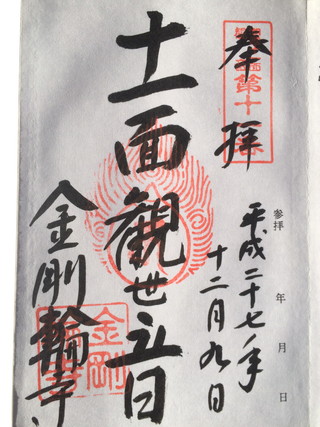 第十
奉拝
参拝 年 月 日
平成二十七年
十二月九日
十一面觀世音
金剛輪寺
金剛
輪寺